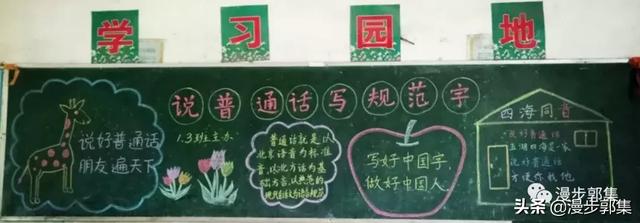 学习园地
说普通话写规范字
说好普通话
朋友遍天下
1.3班主办
普通话就是以
北京语音为标准
音,以北方话为基
础方言,以典范的
现代白话文为语法规范
写好中国字,
做好中国人.
四海同音
说好普通话
五湖四海是一家
说好普通话
方便你我他
漫步郭集
头条@漫步郭集